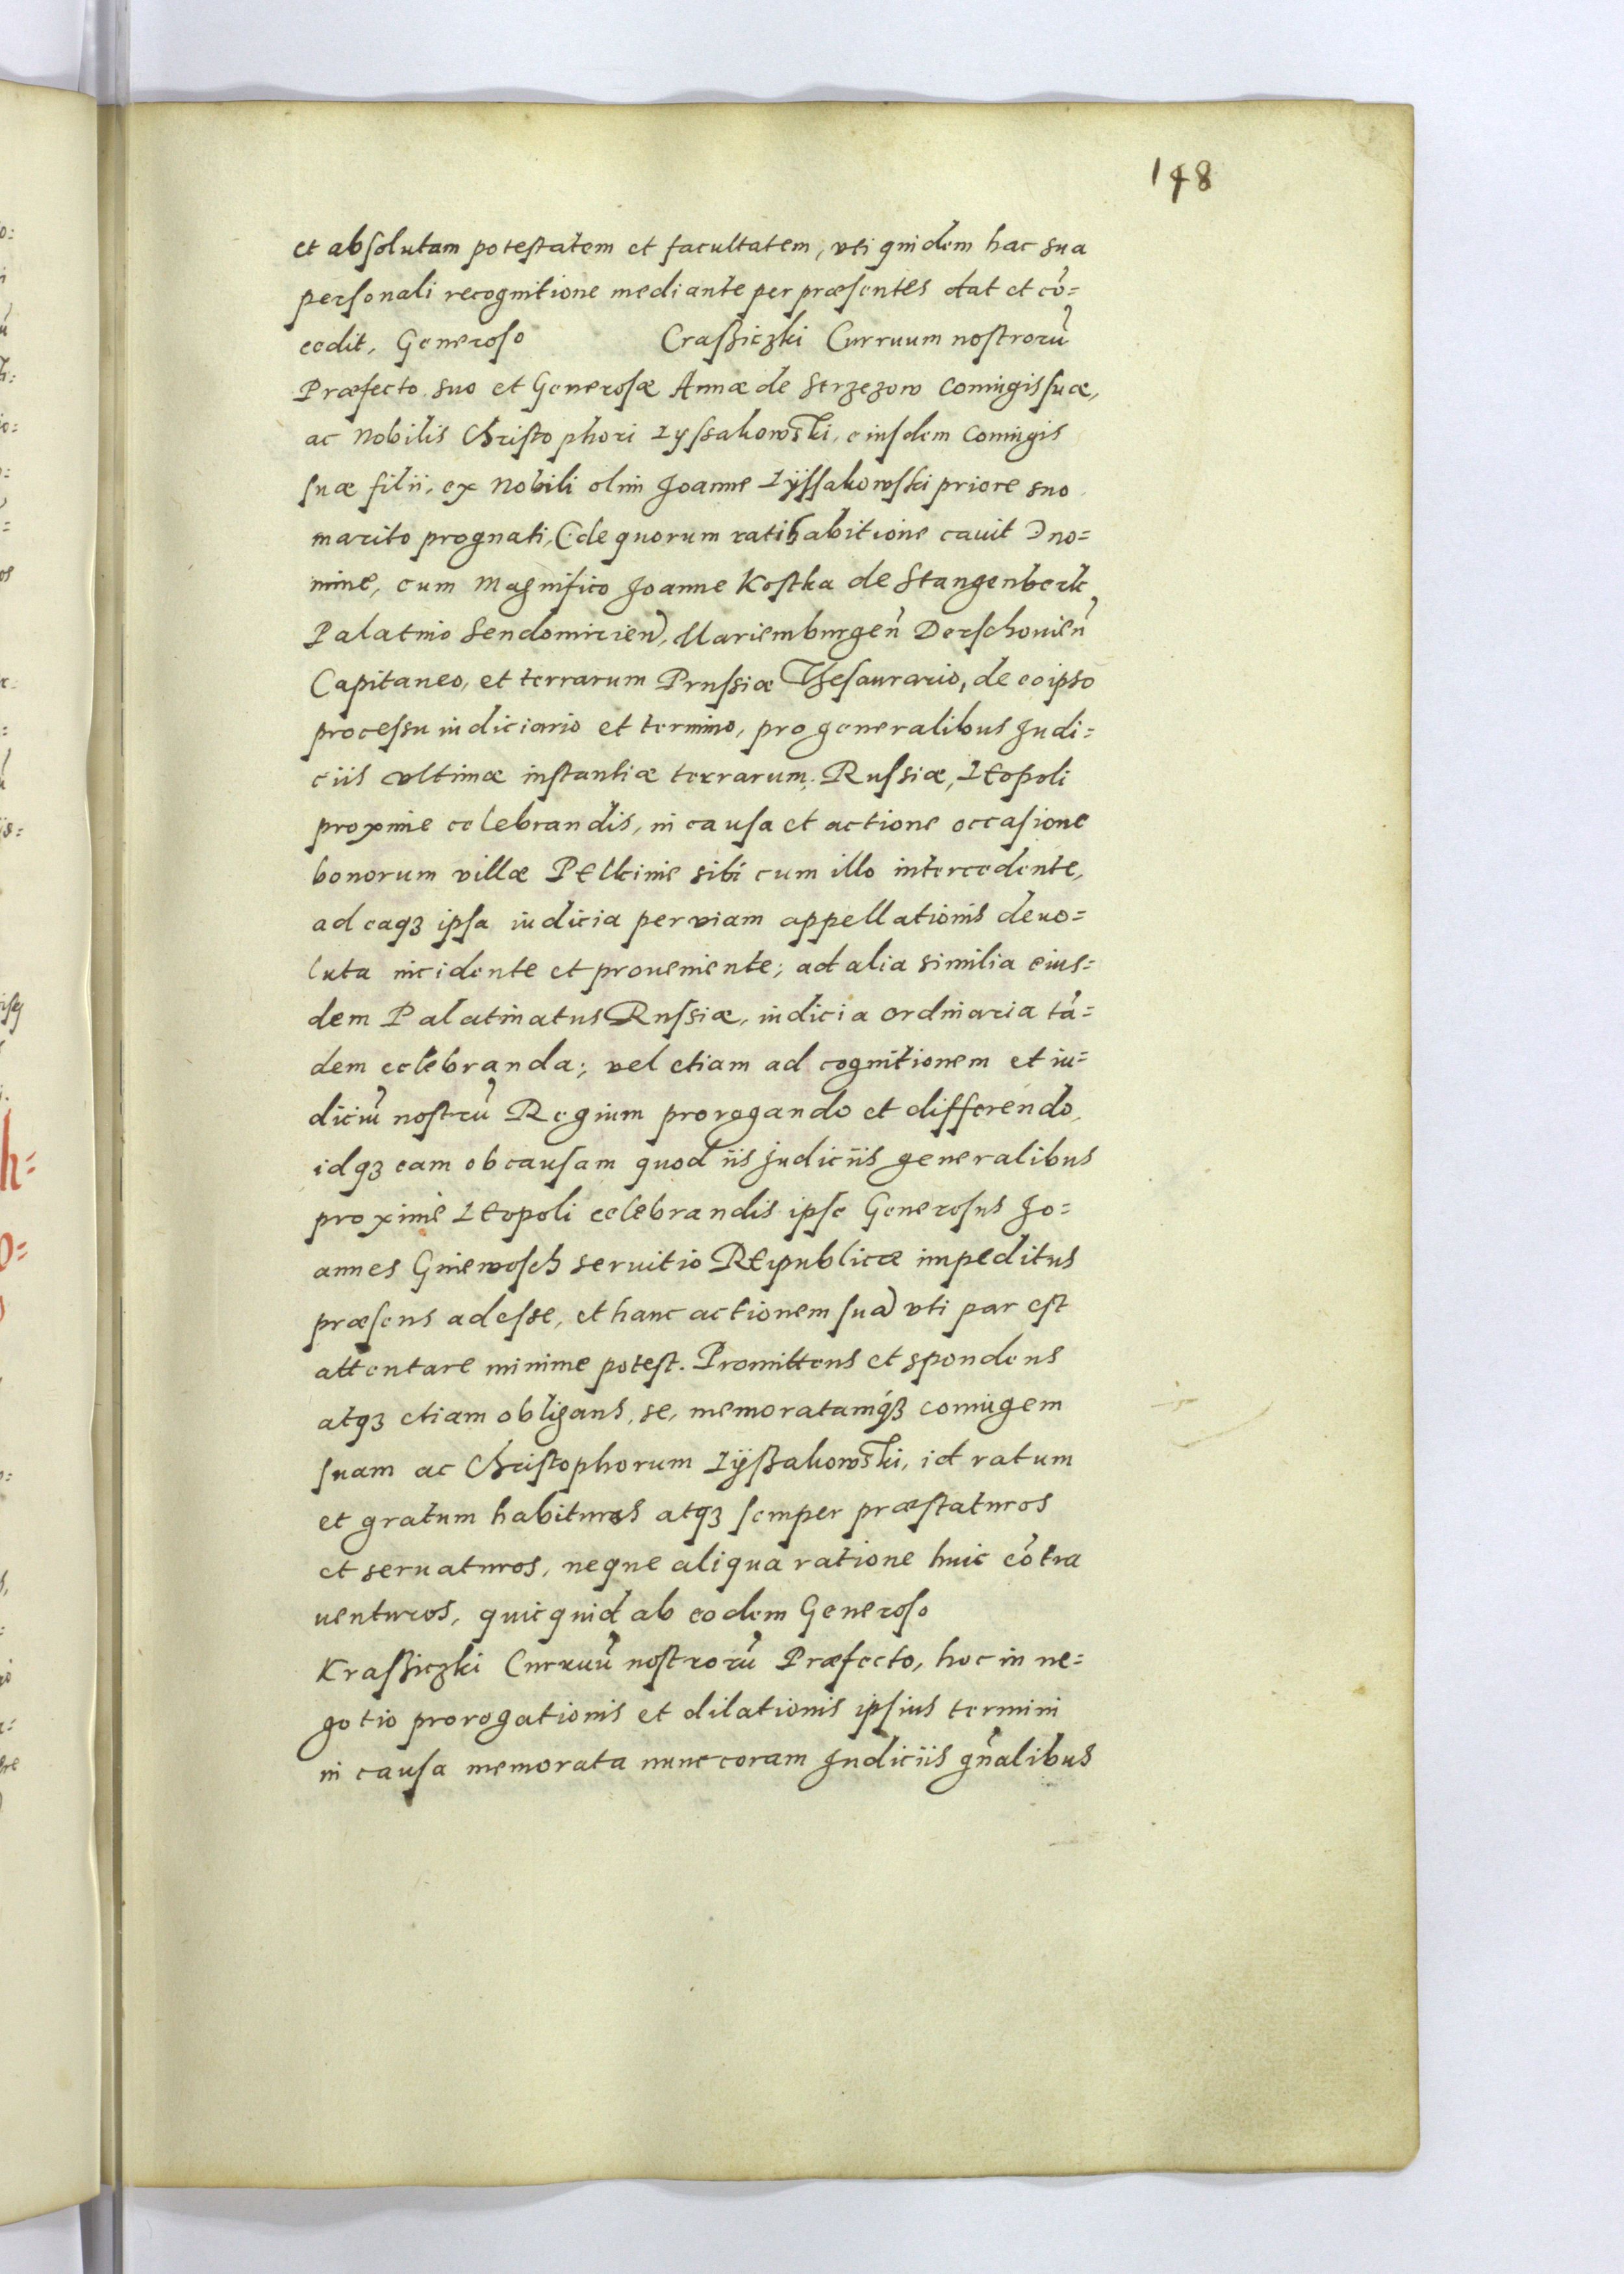 148
et absolutam potestatem et facultatem, vti quidem hac sua
personali recognitione mediante per præsentes dat et cō=
cedit, Generoso Craßiczki Curruum nostrorū
Præfecto. suo et Generosæ Annæ de Strzezow coniugis suæ,
ac Nobilis Christophori Lyssakowski, eiusdem Coniugis
suæ filii, ex Nobili olim Joanne Lÿssakowski priore suo
marito prognati, (de quorum ratihabitione cauit) no=
mine, cum Magnifico Joanne Kostka de Stangenberk
Palatino Sendomirien̄, Mariemburgen̄ Derschouien̄
Capitaneo, et terrarum Prussiæ Thesaurario, de eo ipso
processu iudiciario et termino, pro generalibus Judi=
ciis vltimæ instantiæ terrarum Russiæ, Leopoli
proxime celebrandis, in causa et actione occasione
bonorum villæ Pelkinie sibi cum illo intercedente,
ad eaqꝫ ipsa iudicia per viam appellationis deuo=
luta incidente et proueniente; ad alia similia eius=
dem Palatinatus Russiæ, iudicia ordinaria tā=
dem celebranda; vel etiam ad cognitionem et iu=
diciū nostrū Regium prorogando et differendo,
idqꝫ eam ob causam quod iis judiciis generalibus
proxime Leopoli celebrandis ipse Generosus Jo=
annes Gniewosch seruitio Reipublicæ impeditus
præsens adesse, et hanc actionem suā vti par est
attentare minime potest. Promittens et spondens
atqꝫ etiam obligans, se, memoratamqꝫ coniugem
suam ac Christophorum Lÿßakowski, id ratum
et gratum habituros atqꝫ semper præstaturos
et seruaturos, neque aliqua ratione huic cōtra
uenturos, quicquid ab eodem Generoso
Kraßiczki Curruū nostrorū Præfecto, hoc in ne=
gotio prorogationis et dilationis ipsius termini
in causa memorata nunc coram Judiciis gn̄alibus